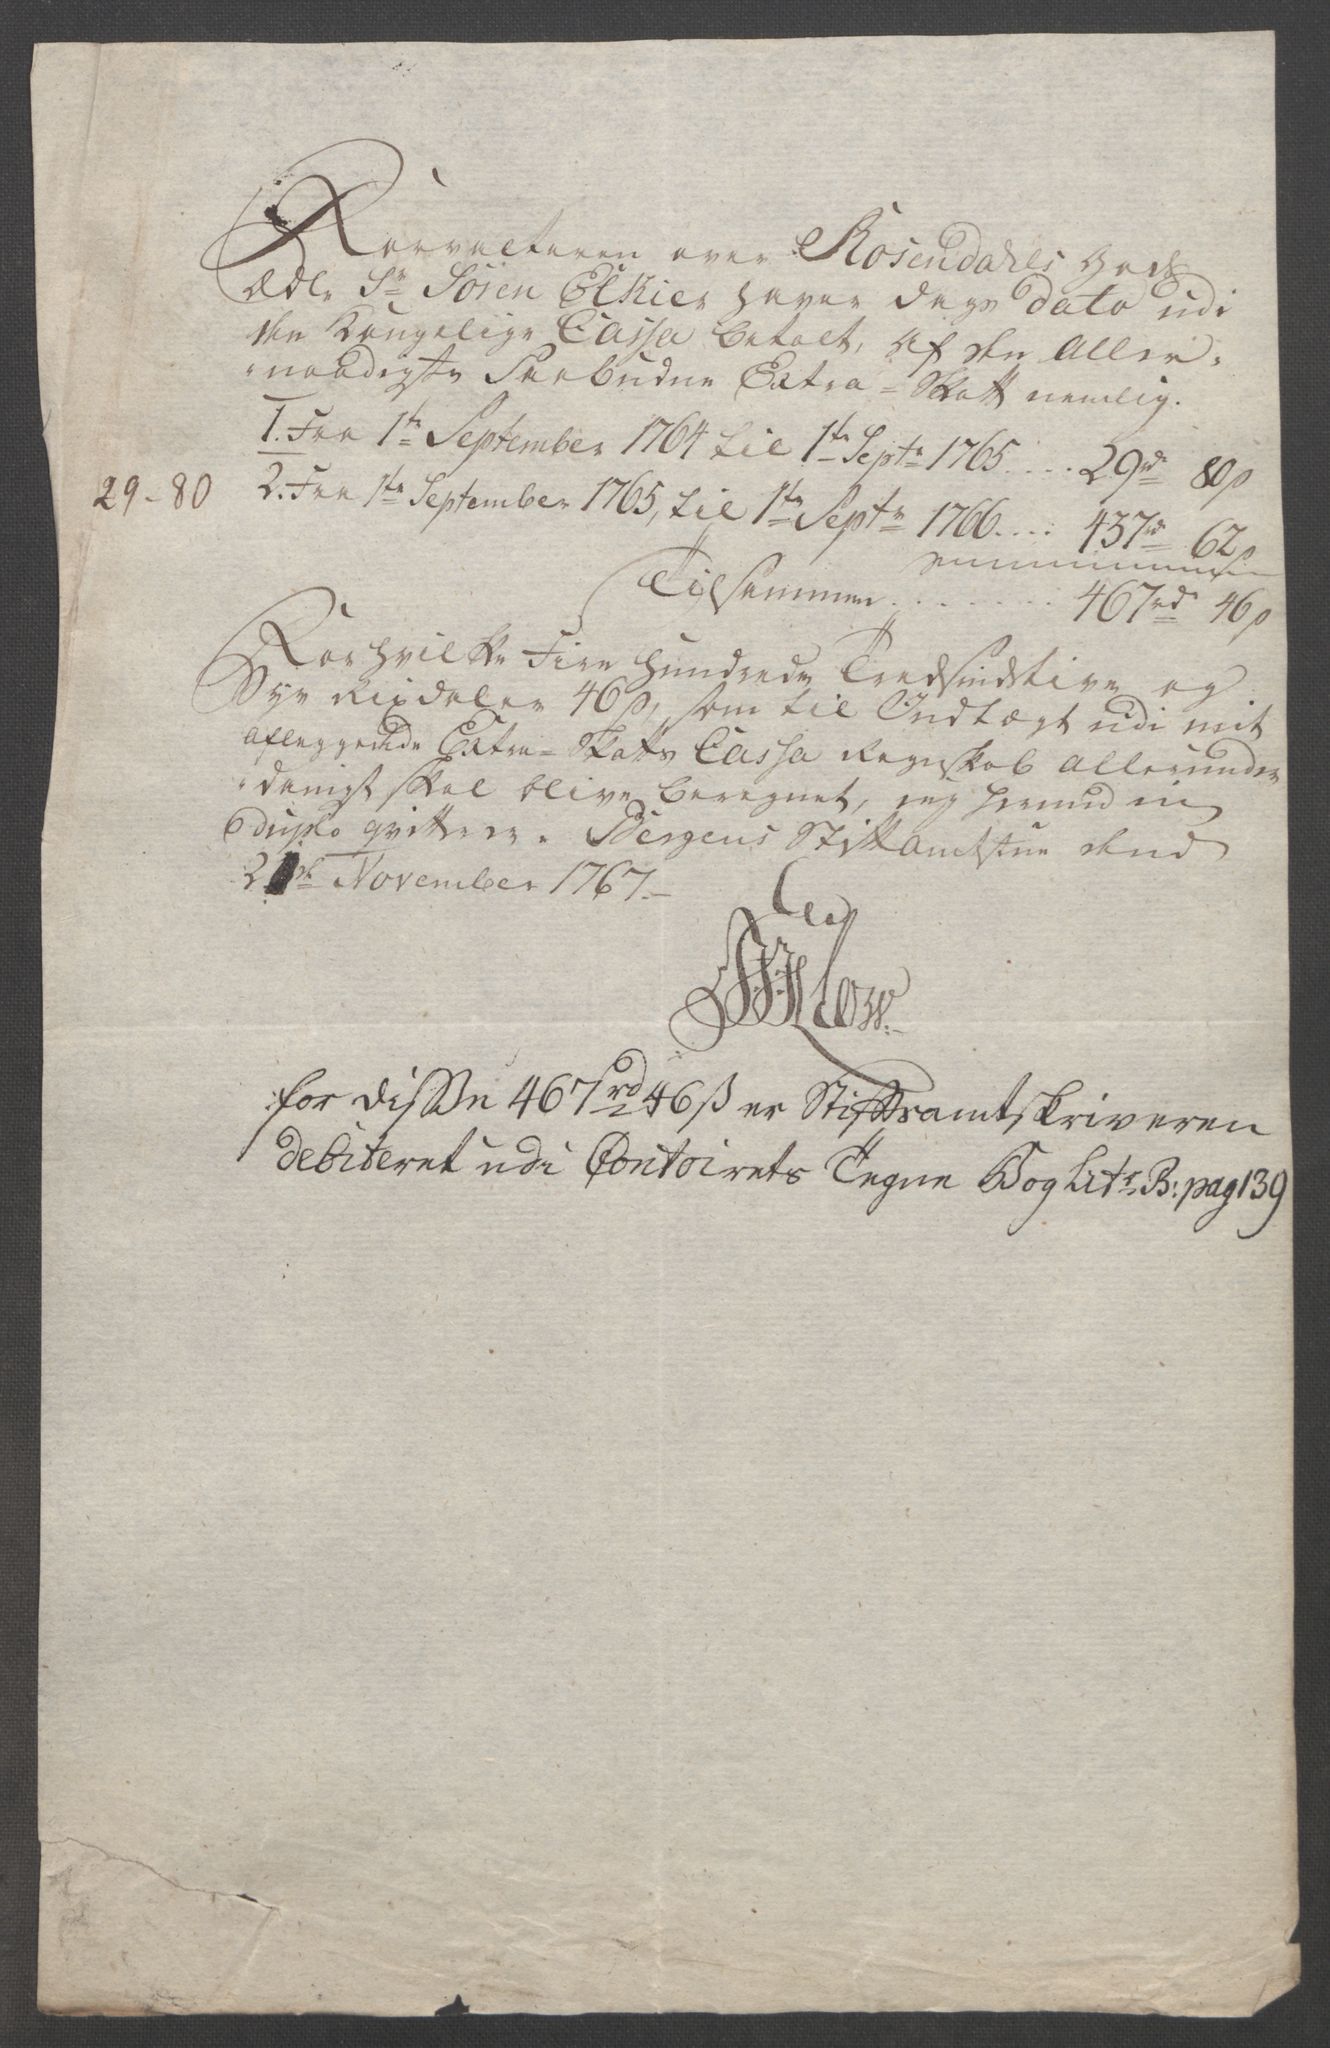 Forvalteren over Rosendahls Gods
Ædle Sr Søren Elkier haver Dags Dato udi
den Kongelige Cassa betalt, af den Aller-
-naadigste Paabudne Extra-Skatt nemlig.
1. Fra 1te September 1764 til 1te Septr 1765 .... 29rd 80ß
29-80 2. Fra 1te September 1765, til 1te Septr 1766 .... 437rd 62ß
Tilsammen ........ 467rd 46ß
For hvilke Fire Hundrede Tredsindstive og
Syv Rixdaler 46ß, som til Indtægt udi mit
aflæggende Extra-Skatts Cassa Regnskab allerunder
-danigst skal blive beregnet, jeg herved in
duplo qvitterer. Bergens Stiftamtstue dend
21de November 1767.
for disse 467rd 46ß er Stiftsamtskriveren
debiteret udi Contoirets Tegne Bog Litr B: pag 139